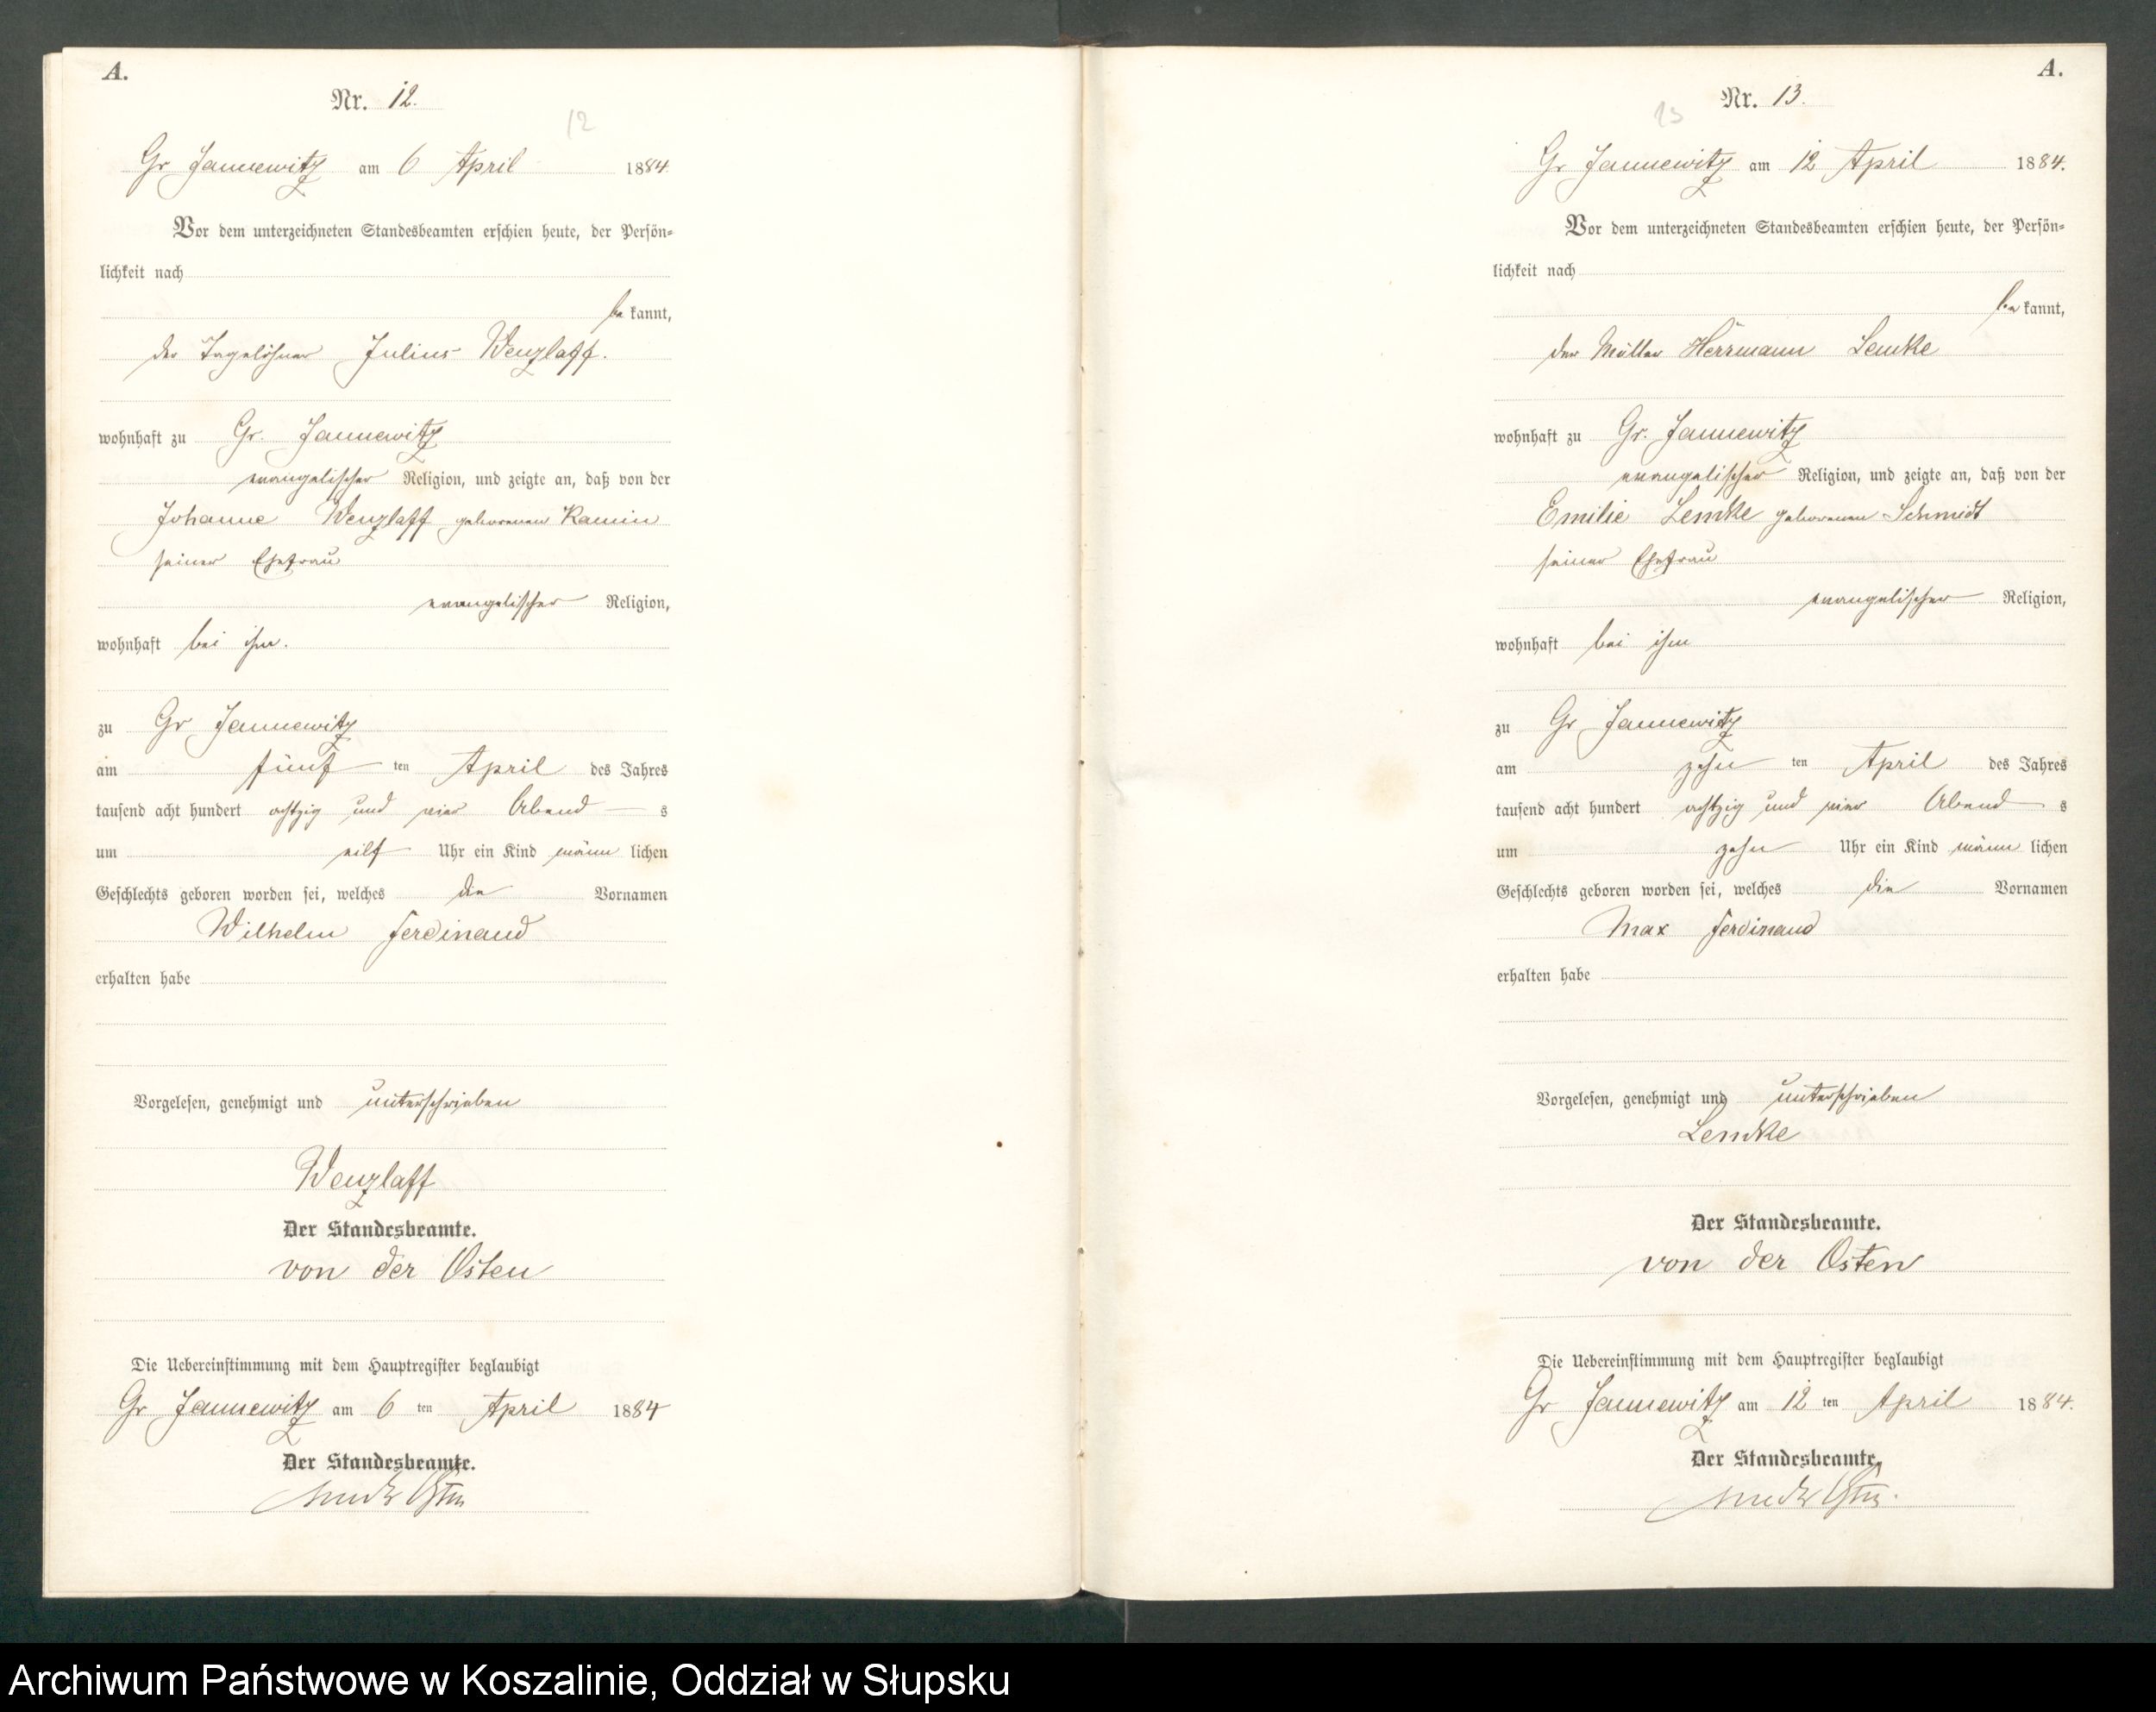 A.
Nr. 12.
12
Gr Jannewitz am 6 April 1884.
Vor dem unterzeichneten Standesbeamten erschien heute, der Persön-
lichkeit nach
be kannt,
der Tagelöhner Julius Wenzlaff.
wohnhaft zu Gr. Jannewitz
evangelischer Religion, und zeigte an, daß von der
Johanne Wenzlaff geborenen Ramin
seiner Ehefrau
evangelischer Religion,
wohnhaft bei ihm.
zu Gr Jannewitz
am fünf ten April des Jahres
tausend acht hundert achtzig und vier Abend s
um eilf Uhr ein Kind männ lichen
Geschlechts geboren worden sei, welches die Vornamen
Wilhelm Ferdinand
erhalten habe
Vorgelesen, genehmigt und unterschrieben
Wenzlaff
Der Standesbeamte.
von der Osten
Die Uebereinstimmung mit dem Hauptregister beglaubigt
Gr Jannewitz am 6 ten April 1884
Der Standesbeamte.
von der Osten
A.
Nr. 13.
13
Gr Jannewitz am 12 April 1884.
Vor dem unterzeichneten Standesbeamten erschien heute, der Persön-
lichkeit nach
be kannt,
der Müller Herrmann Lemke
wohnhaft zu Gr. Jannewitz
evangelischer Religion, und zeigte an, daß von der
Emilie Lemke geborenen Schmidt
seiner Ehefrau
evangelischer Religion,
wohnhaft bei ihm
zu Gr Jannewitz
am zehn ten April des Jahres
tausend acht hundert achtzig und vier Abend s
um zehn Uhr ein Kind männ lichen
Geschlechts geboren worden sei, welches die Vornamen
Max Ferdinand
erhalten habe
Vorgelesen, genehmigt und unterschrieben
Lemke
Der Standesbeamte.
von der Osten
Die Uebereinstimmung mit dem Hauptregister beglaubigt
Gr Jannewitz am 12 ten April 1884.
Der Standesbeamte.
von der Osten.
Archiwum Państwowe w Koszalinie, Oddział w Słupsku